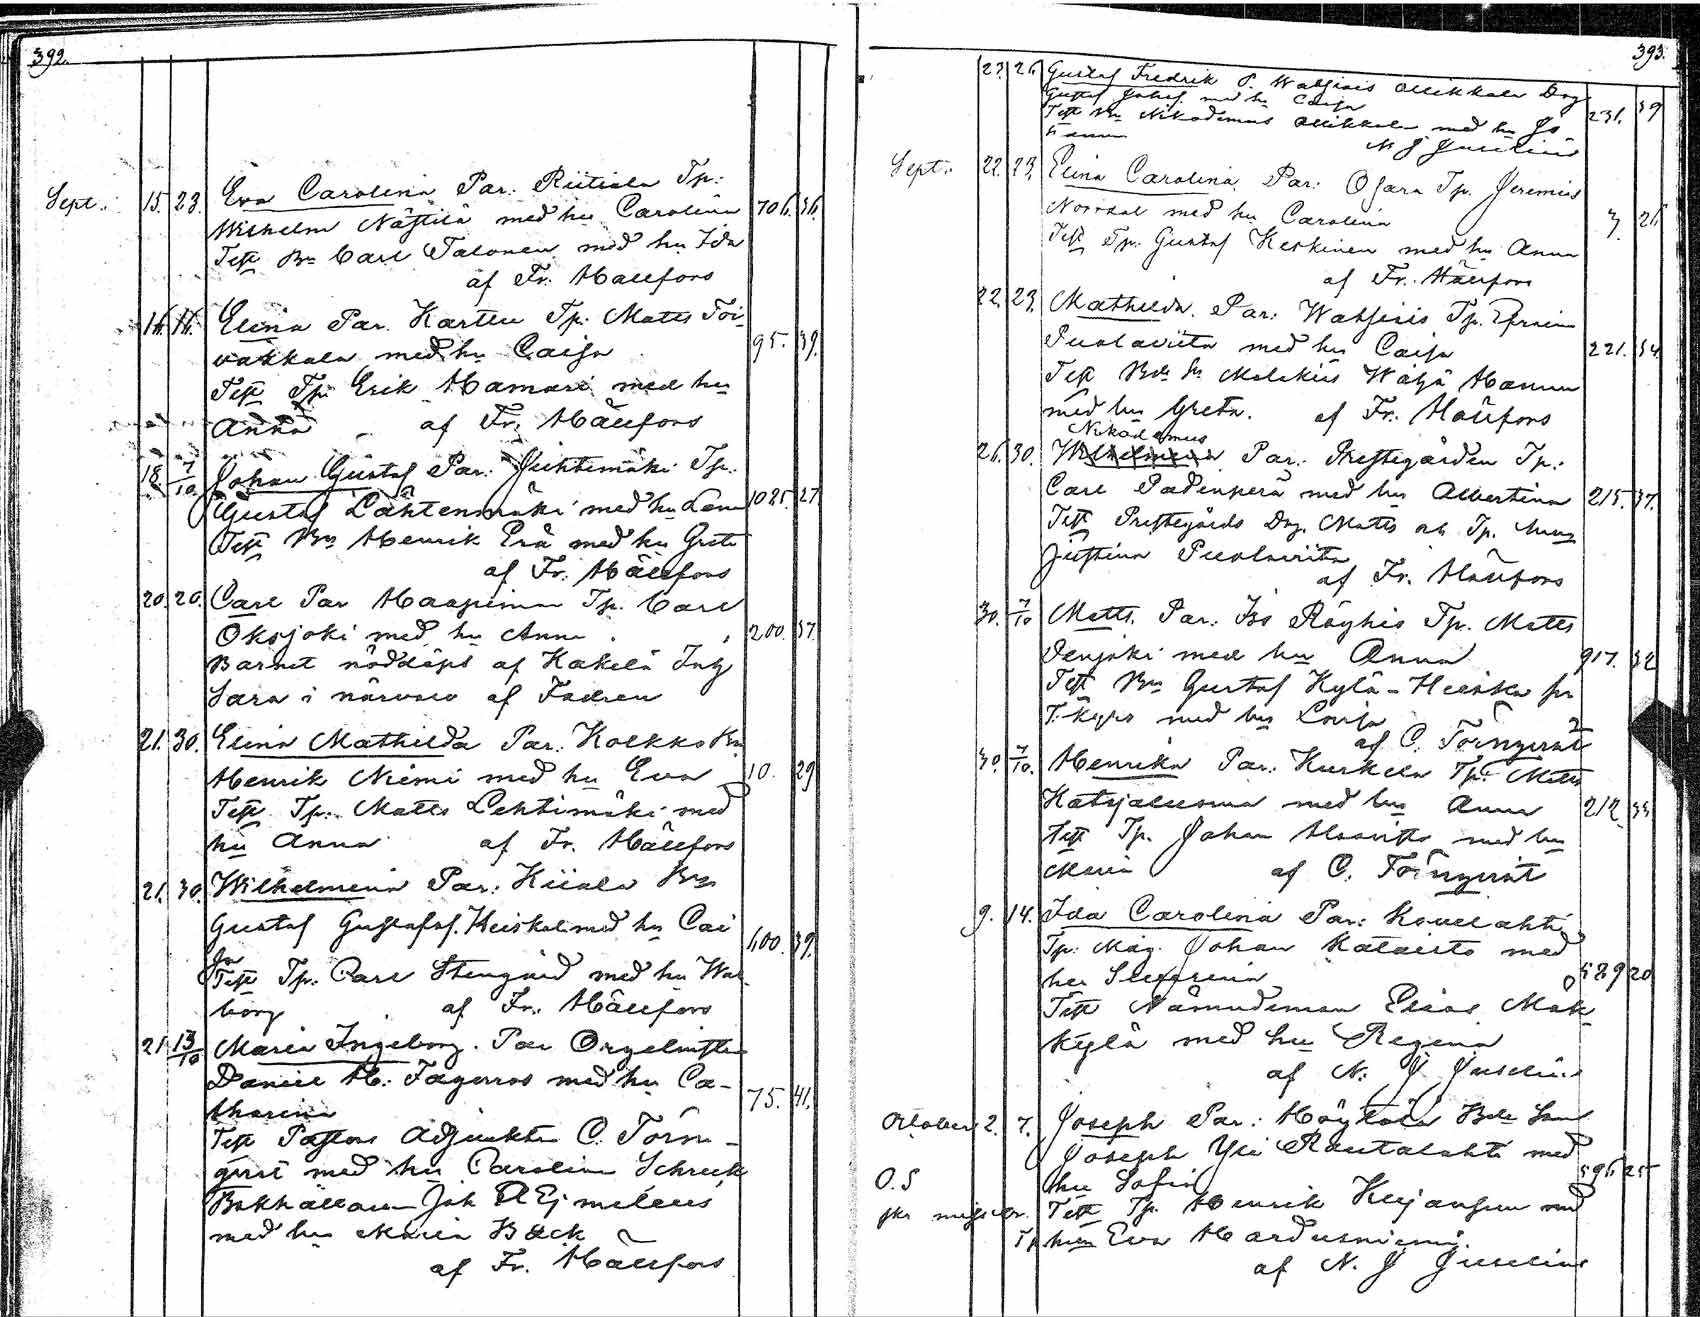 392.
Sept. 15. 23. Eva Carolina Par: Riitiala Tp:
Wilhelm Näppilä med hu Carolina 706. 36.
Test Bn Carl Talonen med hu Ida
af Fr. Hällfors
16. 16. Elina Par. Karttu Tp. Matts Toi-
vakkala med hu Caisa 95. 39.
Test Tp. Erik Hamari med hu
Anna af Fr. Hällfors
18. 7/10 Johan Gustaf Par: Juhtimäki Tp.
Gustaf Lähtenmäki med hu Lena 1025. 27.
Test Bn Henrik Erä med hu Greta
af Fr. Hällfors
20. 20. Carl Par Haapimaa Tp. Carl
Oksjoki med hu Anna 200. 37.
Barnet nöddöpt af Kakelä Inh
Sara i närvaro af Fadren
21. 30. Elina Mathilda Par. Kolkko Bn
Henrik Niemi med hu Eva 10. 29
Test Tp. Matts Lehtimäki med
hu Anna af Fr. Hällfors
21. 30. Wilhelmina Par: Kiiala Bn
Gustaf Gustafsf. Heiskala med hu Cai
sa 600. 39.
Test Tp. Carl Stengård med hu Wal
borg af Fr. Hällfors
21 13/10 Maria Ingeborg. Par Orgelnisten
Daniel H: Fagerroos med hu Ca-
tharina 75. 41.
Test Pastors Adjunkten C. Törn-
qvist med hu Carolina Schreck
Bokhållaren Joh Ejmeleus
med hu Maria Bäck
af Fr. Hällfors
393.
23. 26. Gustaf Fredrik P. Wahjois Ollikkala Drg
Gustaf Johsf. med hu Caisa 231. 39
Test Bn Nikodemus Ollikkala med hu Jo
hanna N J Juselius
Sept. 22. 23. Elina Carolina. Par: Ojara Tp. Jeremias
Norrdal med hu Carolina 7. 26
Test Tp. Gustaf Keskinen med hu Anna
af Fr. Hällfors
22. 23. Mathilda. Par: Wahjois Tp. Efraim
Puolaviita med hu Caisa 221. 34.
Test Malakias Wähä Hannu
med hu Greta. af Fr. Hällfors
Nikodemus
26. 30. Wilhelmina Par: Prestegården Tp:
Carl Padenperä med hu Albertina 215. 37.
Test Prestegårds Drg. Matts och Tp. hu
Justina Puolaviita
af Fr. Hällfors
30. 7/10 Matts. Par: Iso Röyhis Tp. Matts
Venjoki med hu Anna 917. 32
Test Bn Gustaf Kylä-Heiska fr
T. kyro med hu Lovisa
af C. Törnqvist
30. 7/10. Henrika Par: Kurkela Tp. Matts
Katajaluoma med hu Anna 212. 33
Test Tp. Johan Haavisto med hu
Maria af C. Törnqvist
9. 14. Ida Carolina Par: Kouvelahti
Tp. Måg Johan Kataisto med
hu Serafina 529 20
Test Nämndeman Elias Mäk-
kylä med hu Regina
af N. J Juselius
October 2. 7. Joseph Par: Höykölä Bde Son
Joseph Yli Rautalahti med
O.S hu Sofia 596 25
Test Tp. Henrik Kujanpää med
hu Eva Hardusniemi
af N. J Juselius